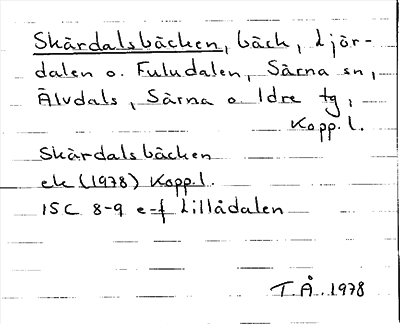 Skärdalsbäcken, bäck, Ljör-
dalen o. Fuludalen, Särna sn,
Älvdals, Särna o Idre tg,
Kopp. l.
Skärdalsbäcken
ek (1978) Kopp. l.
15C 8-9 e-f Lillådalen
T.Å. 1978